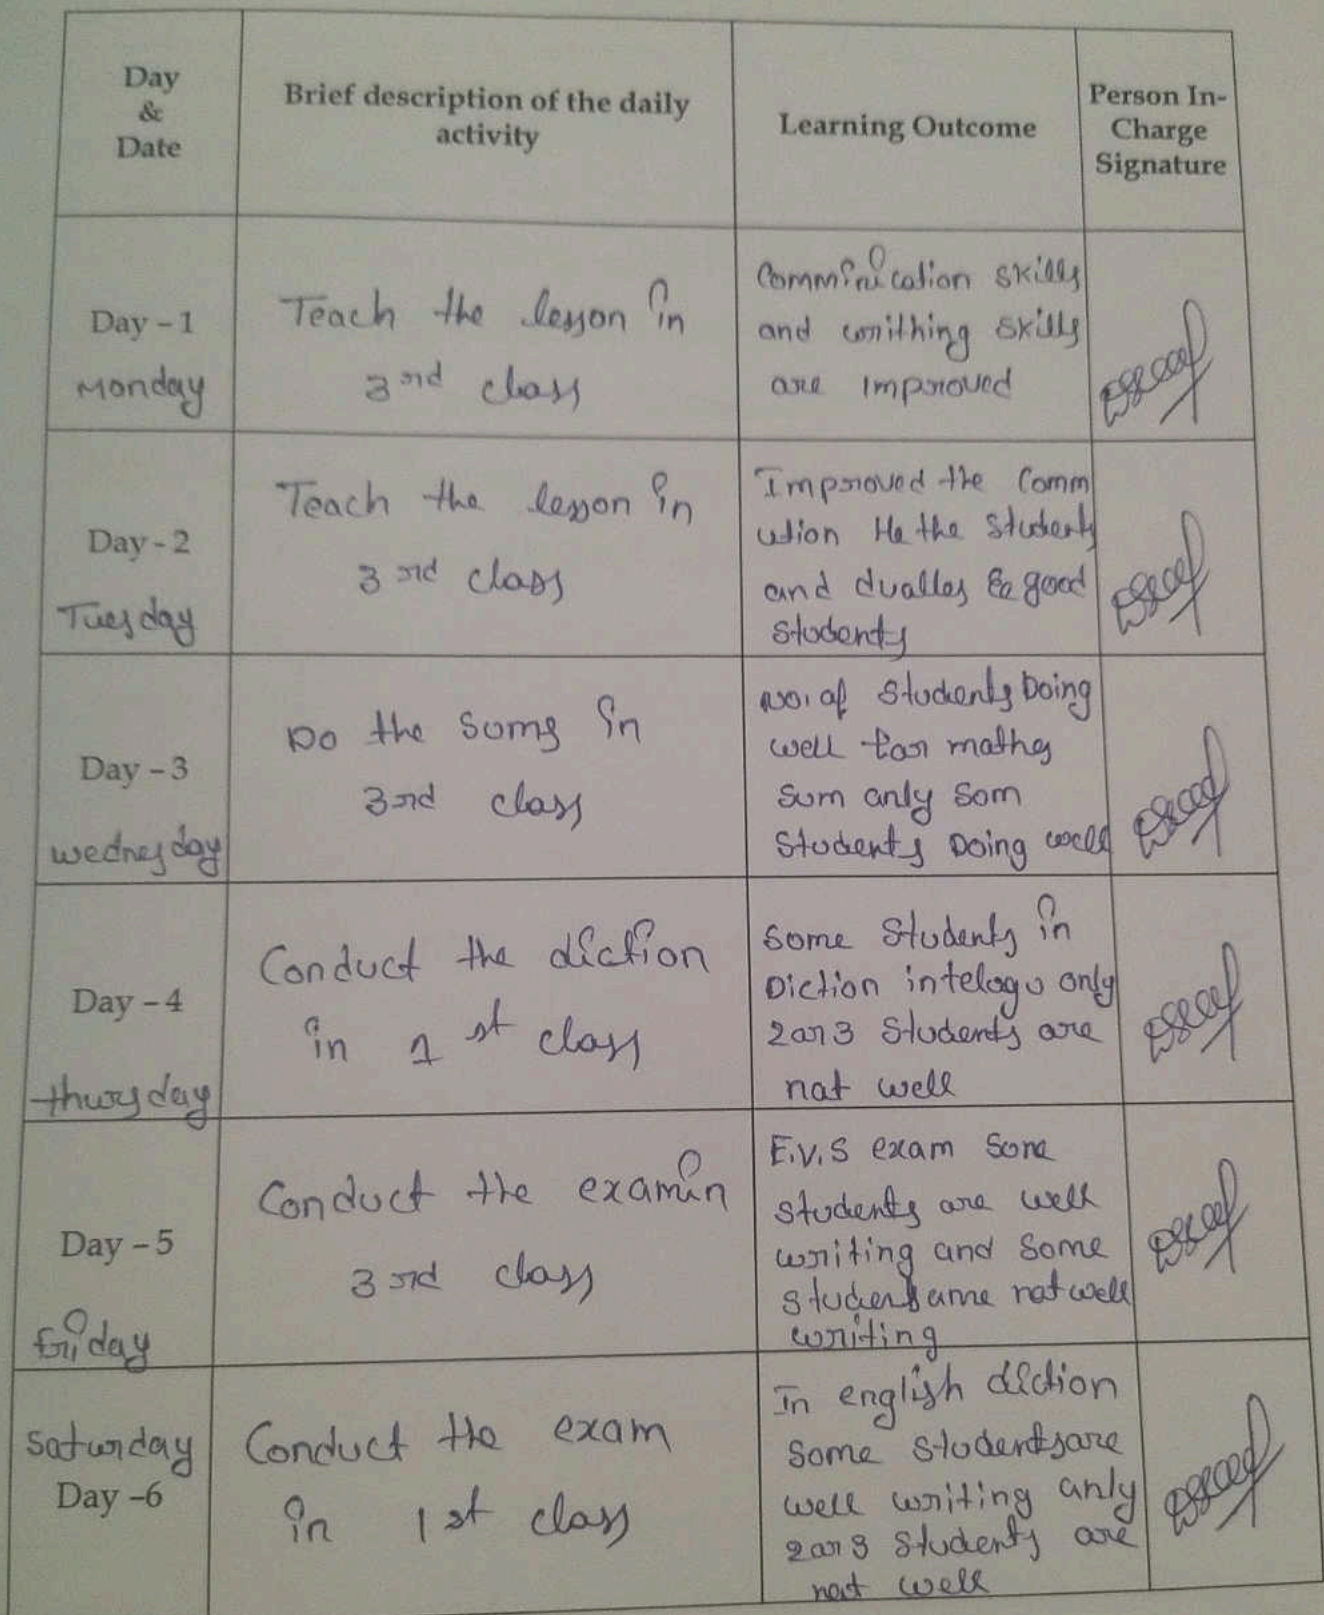 Day
&
Date
Brief description of the daily
activity
Learning Outcome
Person In-
Charge
Signature
Day - 1
Monday
Teach the lesson in
3rd class
Comminication skills
and writhing skills
are Improved
Day - 2
Tuesday
Teach the lesson in
3rd class
Improved the Comm
ution the Students
and good
students
Day - 3
wednesday
Do the soms in
3rd class
No. of Students Doing
well for maths
sum only som
Students Doing well
Day - 4
thursday
Conduct the diction
in 1st class
some Students in
Diction intelogu only
2 or 3 Students are
not well
Day - 5
friday
Conduct the examin
3rd class
E.V.S exam some
students are well
writing and some
not well
writing
Saturday
Day -6
Conduct the exam
in 1st class
In english diction
some students are
well writing only
2 or 3 Students are
not well